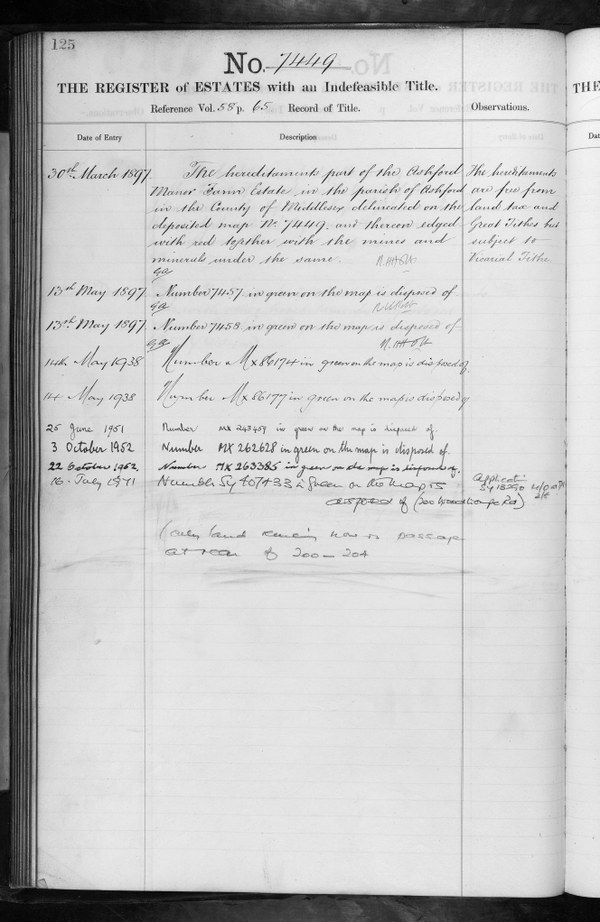 125
No. 7449
THE REGISTER of ESTATES with an Indefeasible Title.
Reference Vol. 58 p. 65 Record of Title. Observations.
Date of Entry Description
30th March 1897 The hereditaments part of the Ashford The hereditaments
Manor Farm Estate in the parish of Ashford are free from
in the County of Middlesex delineated on the land tax and
deposited map No. 7449 and thereon edged Great Tithes but
with red together with the mines and subject to
minerals under the same. Vicarial Tithe
13th May 1897 Number 7457 in green on the map is disposed of
13th May 1897 Number 7458 in green on the map is disposed of
14th May 1938 Number Mx 86174 in green on the map is disposed of.
14 May 1938 Number Mx 86177 in green on the map is disposed of
25 June 1951 Number MX 243459 in green on the map is disposed of.
3 October 1952 Number MX 262628 in green on the map is disposed of.
22 October 1952 Number MX 263385 in green on the map is disposed of.
16 July 1971 Number Sy 407433 in green on the map is
disposed of
(only land remaining now is passage
at rear of 200 - 204
THE